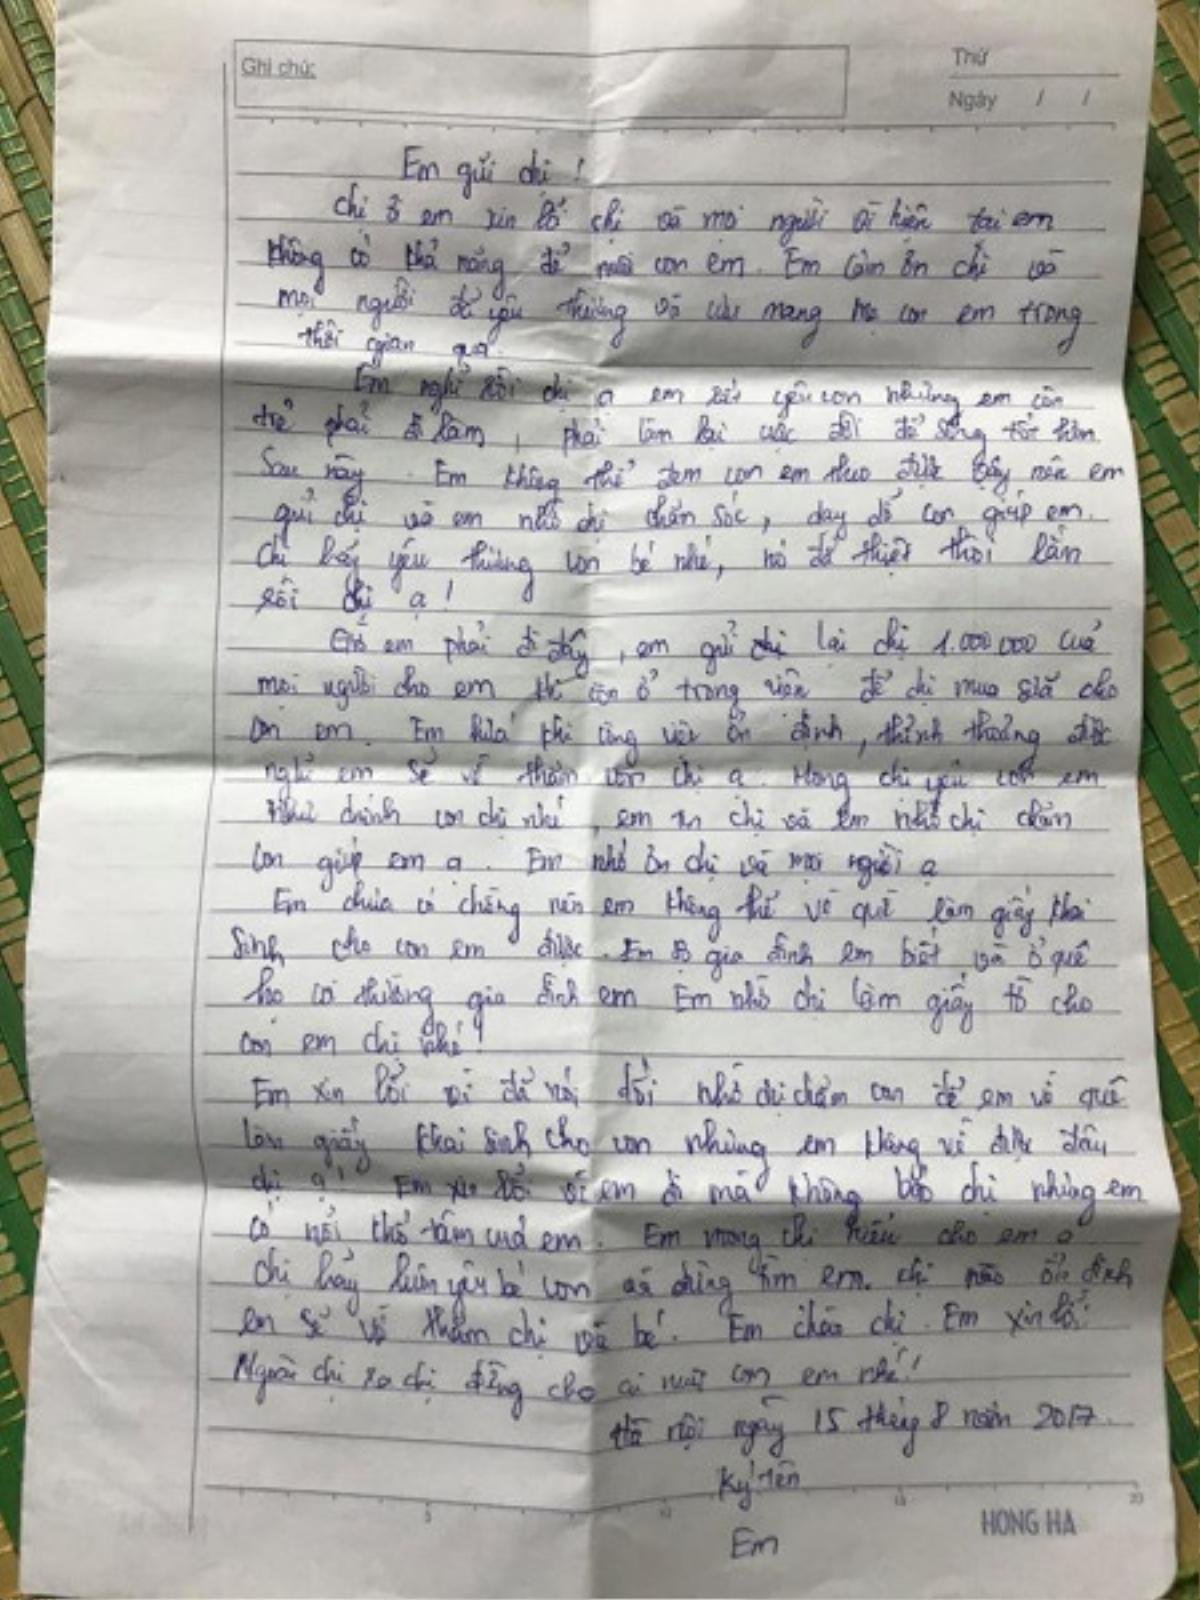 Ghi chú:
Thứ
Ngày / /
Em gửi chị !
Chị ơ em xin lỗi chị và mọi người vì hiện tại em
không có khả năng để nuôi con em. Em cảm ơn chị và
mọi người đã yêu thương và cưu mang mẹ con em trong
thời gian qua.
Em nghĩ rồi chị ạ em rất yêu con nhưng em còn
trẻ phải đi làm, phải làm lại cuộc đời để sống tốt hơn
sau này. Em không thể đem con em theo được vậy nên em
gửi chị và em nhờ chị chăm sóc, dạy dỗ con giúp em.
Chị hãy yêu thương con bé nhé, nó đã thiệt thòi lắm
rồi chị ạ!
Giờ em phải đi đây, em gửi chị lại chị 1.000.000 của
mọi người cho em khi còn ở trong viện để chị mua sữa cho
con em. Em hứa khi công việc ổn định, thỉnh thoảng được
nghỉ em sẽ về thăm con chị ạ. Mong chị yêu con em
như chính con chị nhé, em tin chị và em nhờ chị chăm
con giúp em ạ. Em nhớ ơn chị và mọi người ạ
Em chưa có chồng nên em không thể về quê làm giấy khai
sinh cho con em được. Em sợ gia đình em biết và ở quê
họ cười gia đình em Em nhờ chị làm giấy tờ cho
con em chị nhé!
Em xin lỗi vì đã nói dối nhờ chị chăm con để em về quê
làm giấy khai sinh cho con nhưng em không về được đâu
chị ạ! Em xin lỗi vì em đi mà không bảo chị nhưng em
có nỗi khổ tâm của em. Em mong chị hiểu cho em ạ
chị hãy luôn yêu bé con và đừng tìm em. khi nào ổn định
em sẽ về thăm chị và bé. Em chào chị. Em xin lỗi
Ngoài chị ra chị đừng cho ai nuôi con em nhé!
Hà Nội ngày 15 tháng 8 năm 2017.
Ký tên
5 10 15 20
HONG HA
Em